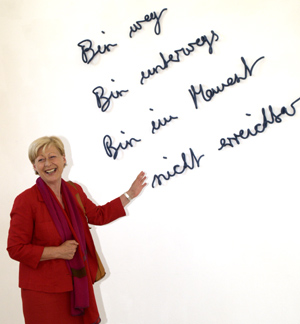 Bin weg
Bin unterwegs
Bin im Moment
nicht erreichbar